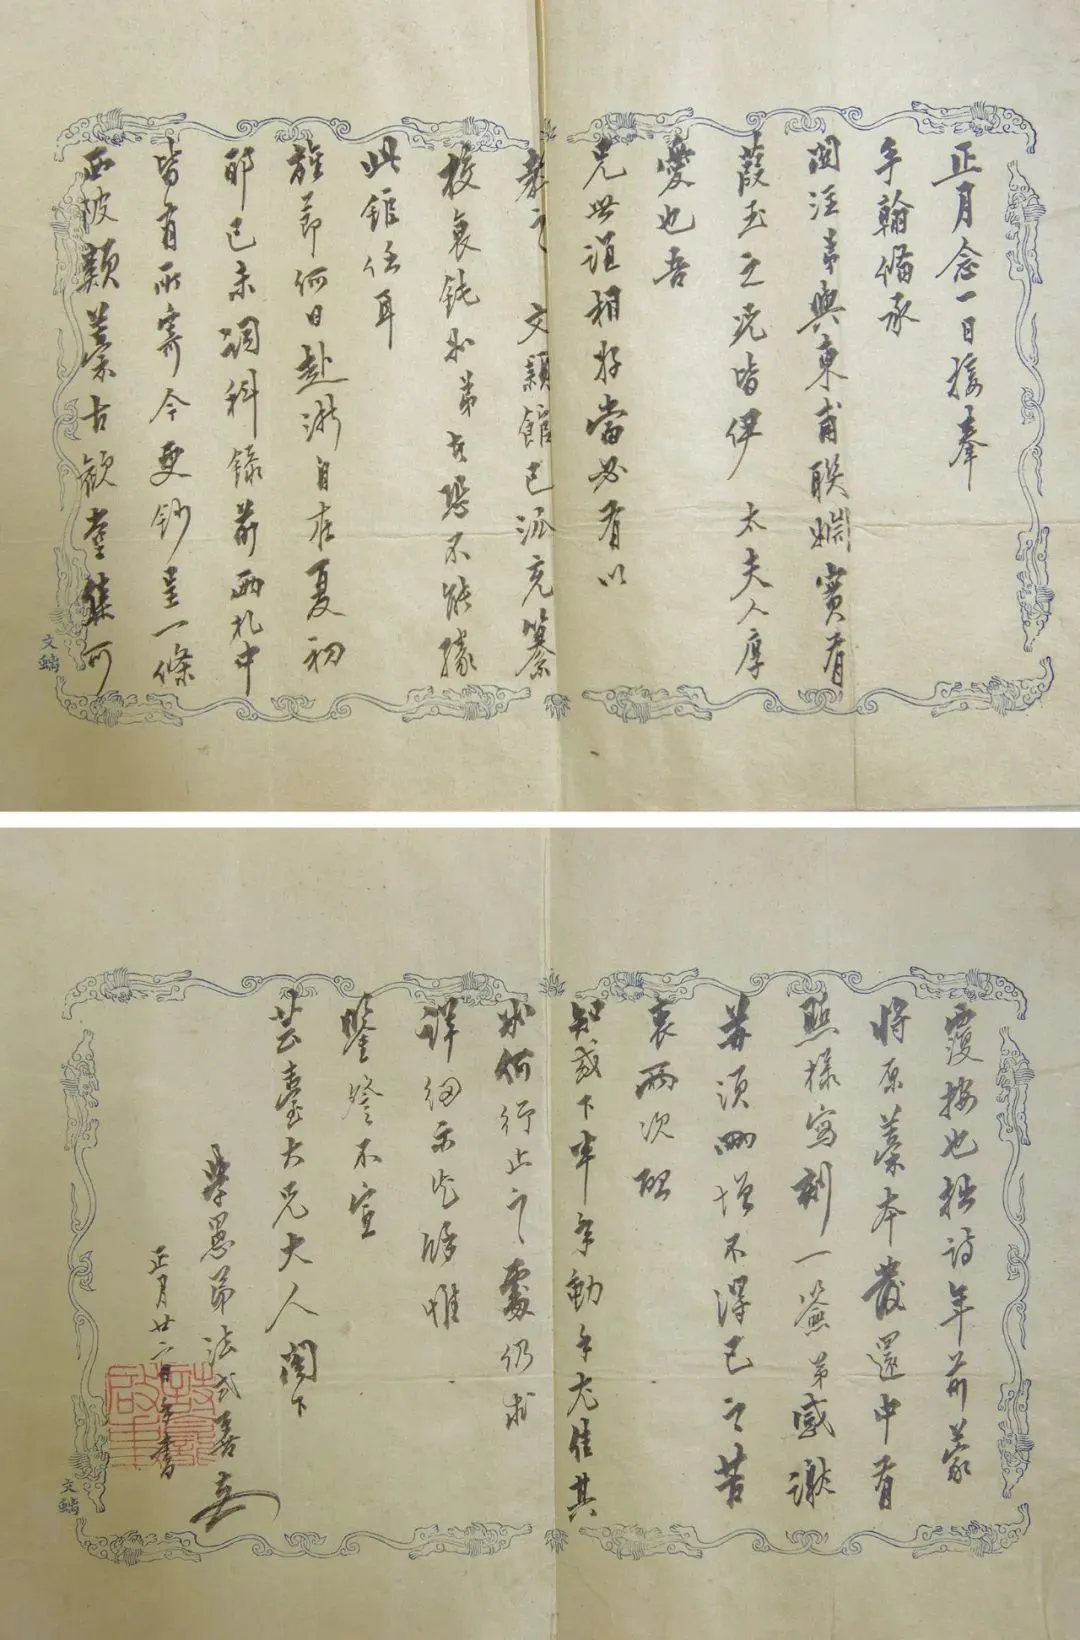 正月念一日接奉
手翰備承
關注弟與東甫聯姻實有
葭玉之說皆伊 太夫人厚
愛也吾
兄世誼相好當必有以
教之 文穎館已派充纂
校衰鈍如弟者恐不能勝
此館任耳
旌節何日赴浙自在夏初
耶己未詞科錄前兩札中
皆有所寄今更鈔呈一條
西陂類稾古歡堂集可
文
覆按也拙詩年前蒙
將原稾本發還中有
照樣寫刻一簽弟感謝
苐須刪增不得已之苦
衷兩次啟
知或下半年動手尤佳其
如何行止之處仍求
詳細示悉肅惟
鑒詧不宣
芸臺大兄大人閣下
學愚弟法式善頓
正月廿六日手書
詩龕
啟事
文